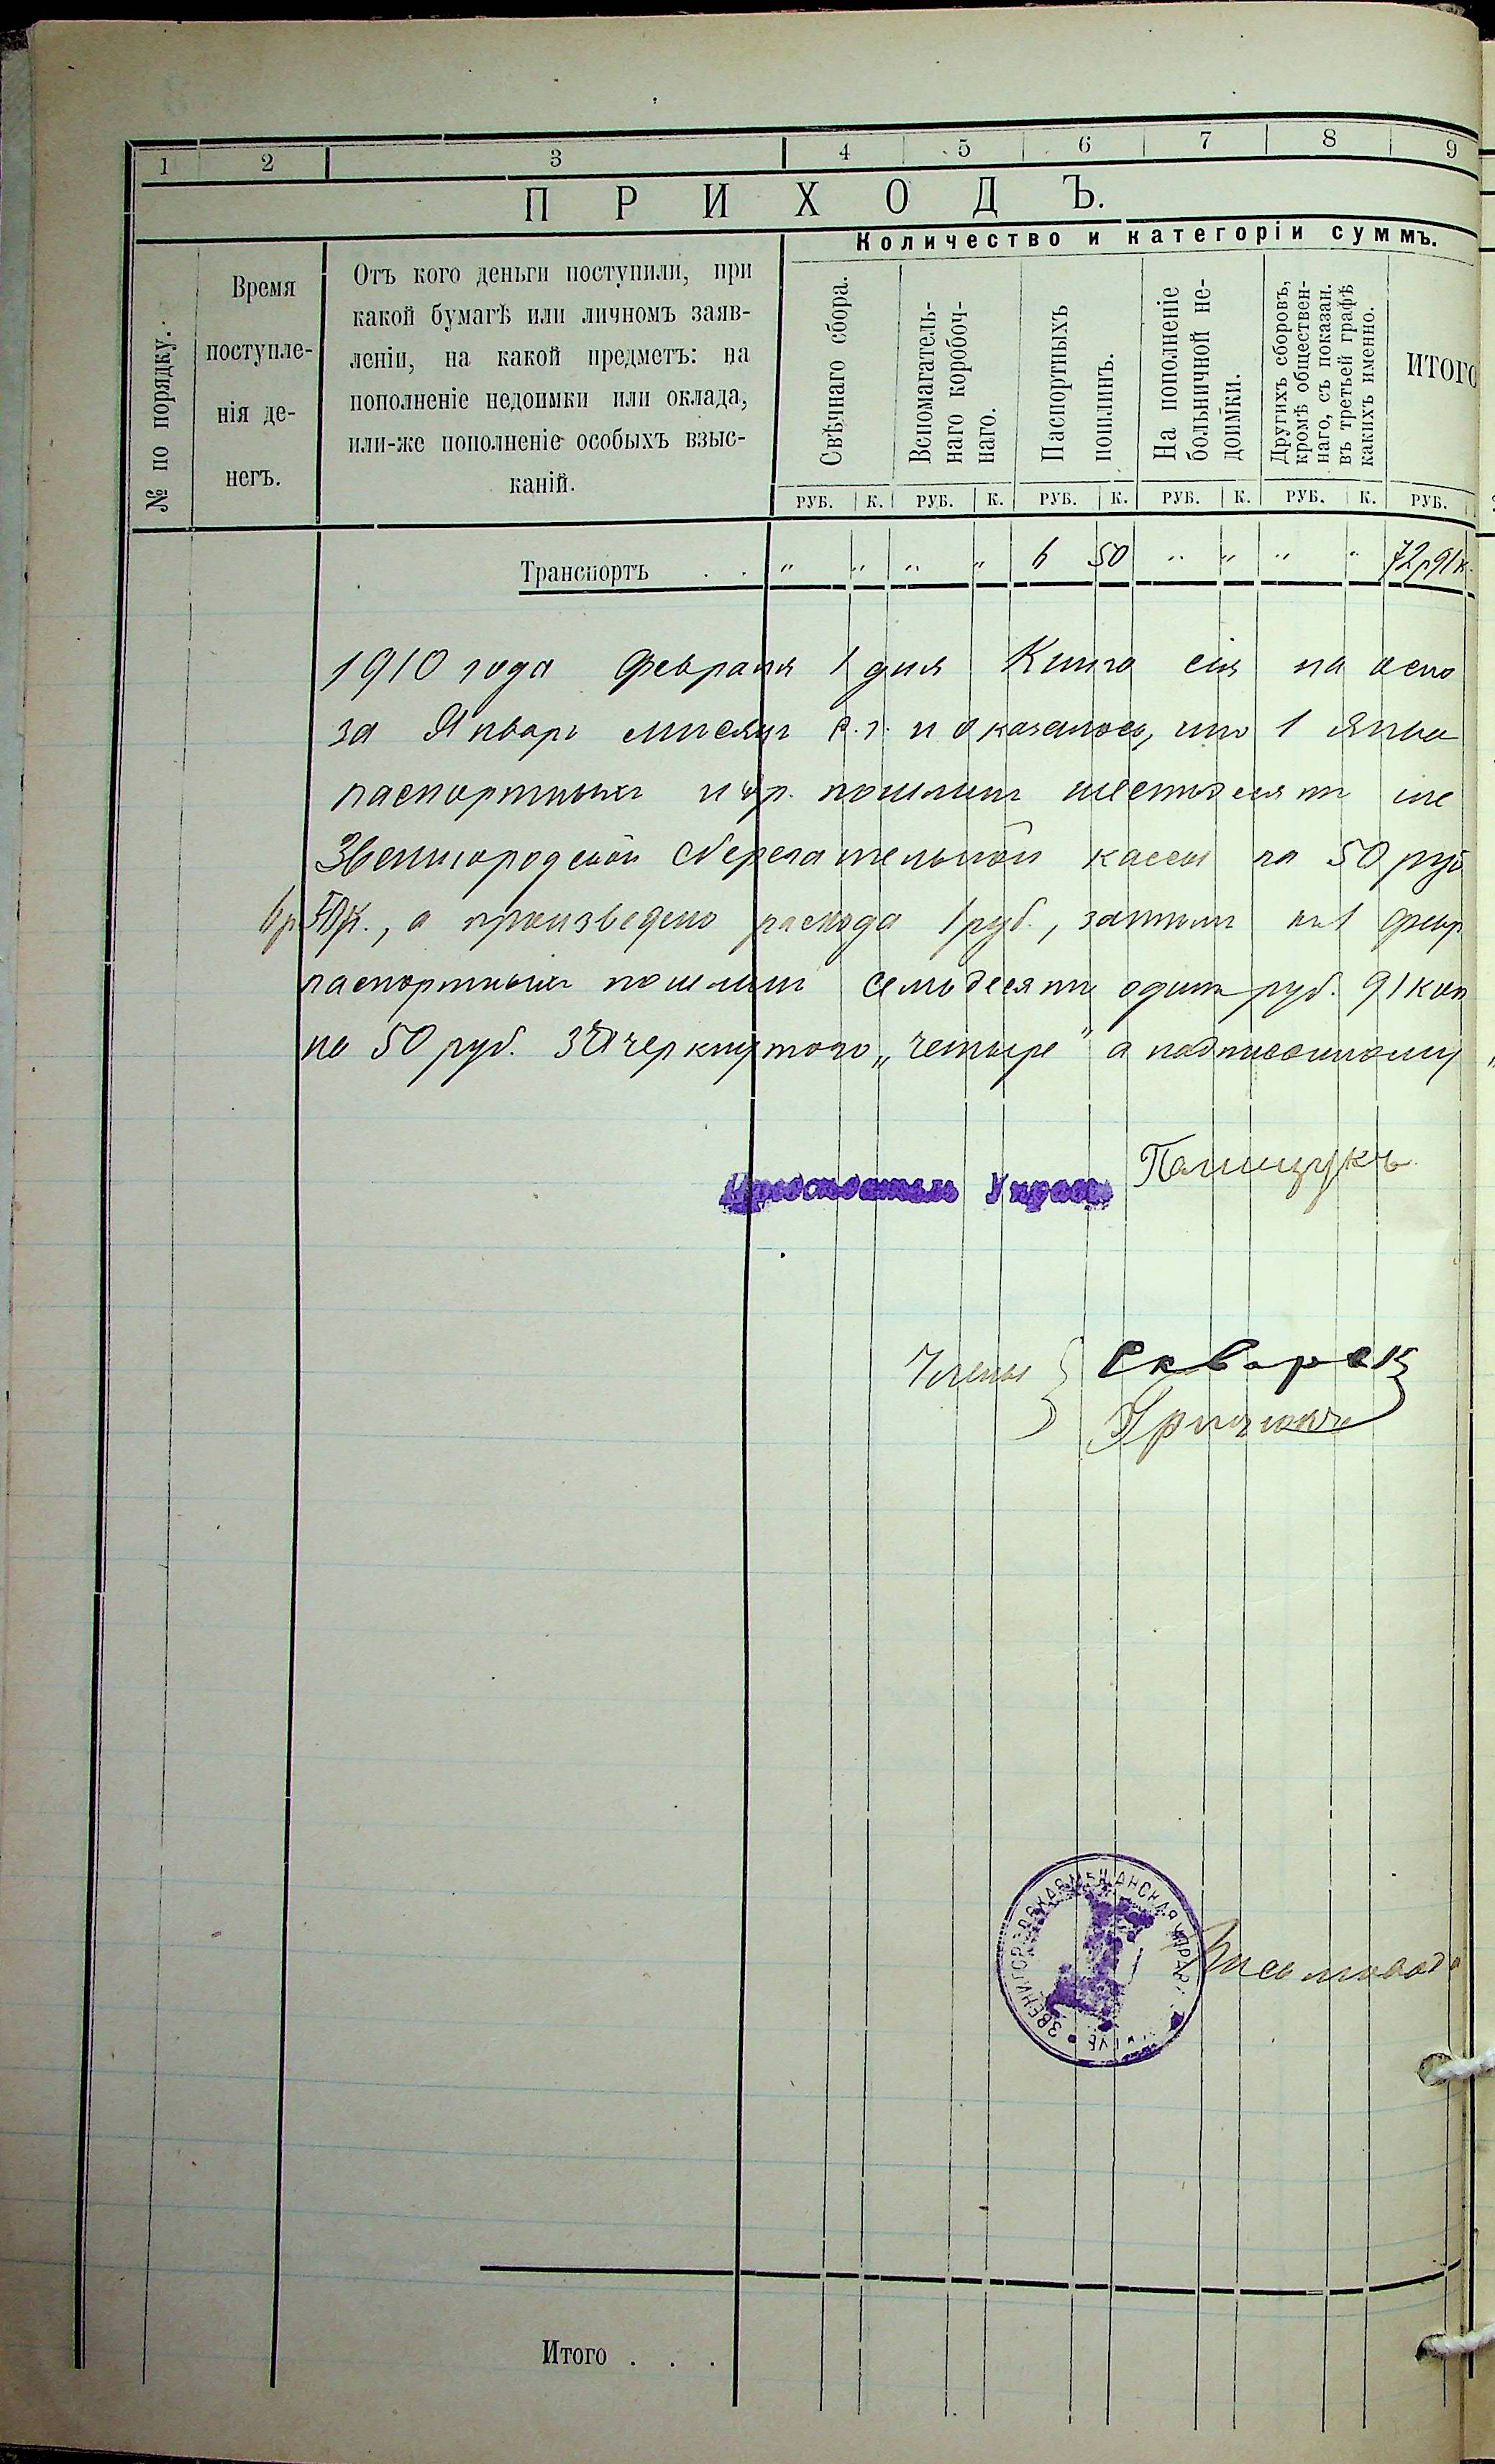 1 2 3 4 5 6 7 8 9
ПРИХОДЪ.
Количество и категоріи суммъ.
№ по порядку.
Время
поступле-
нія де-
негъ.
Отъ кого деньги поступили, при
какой бумагѣ или личномъ заяв-
леніи, на какой предметъ: на
пополненіе недоимки или оклада,
или-же пополненіе особыхъ взыс-
каній.
Свѣчнаго сбора.
Вспомагатель-
наго коробоч-
наго.
Паспортныхъ
пошлинъ.
На пополненіе
больничной не-
доимки.
Другихъ сборовъ,
кромѣ обществен-
наго, съ показан.
въ третьей графѣ
какихъ именно.
ИТОГО
РУБ. К. РУБ. К. РУБ. К. РУБ. К. РУБ. К. РУБ.
Транспортъ . . „ „ „ „ 6 50 „ „ „ „ 72р91к.
1910 года Февраля 1 дня Книга сія на осно
за Январь мѣсяцъ с.г. и оказалось, что 1 Янва
паспортныхъ и др. пошлинъ шестьдесятъ ше
Звенигородской Сберегательной кассы на 50 руб
6р 50к., а произведено расхода 1 руб., затѣмъ на 1 февр
паспортныхъ пошлинъ семьдесятъ одинъ руб. 91 коп
на 50 руб. Зачеркнутого „четыре" а надписанному „
Предсѣдатель Управы Полищукъ
Члены Скварок
ЗВЕНИГОРОДСКАЯ МѢЩАНСКАЯ УПРАВА
Письмовод
Итого . . .